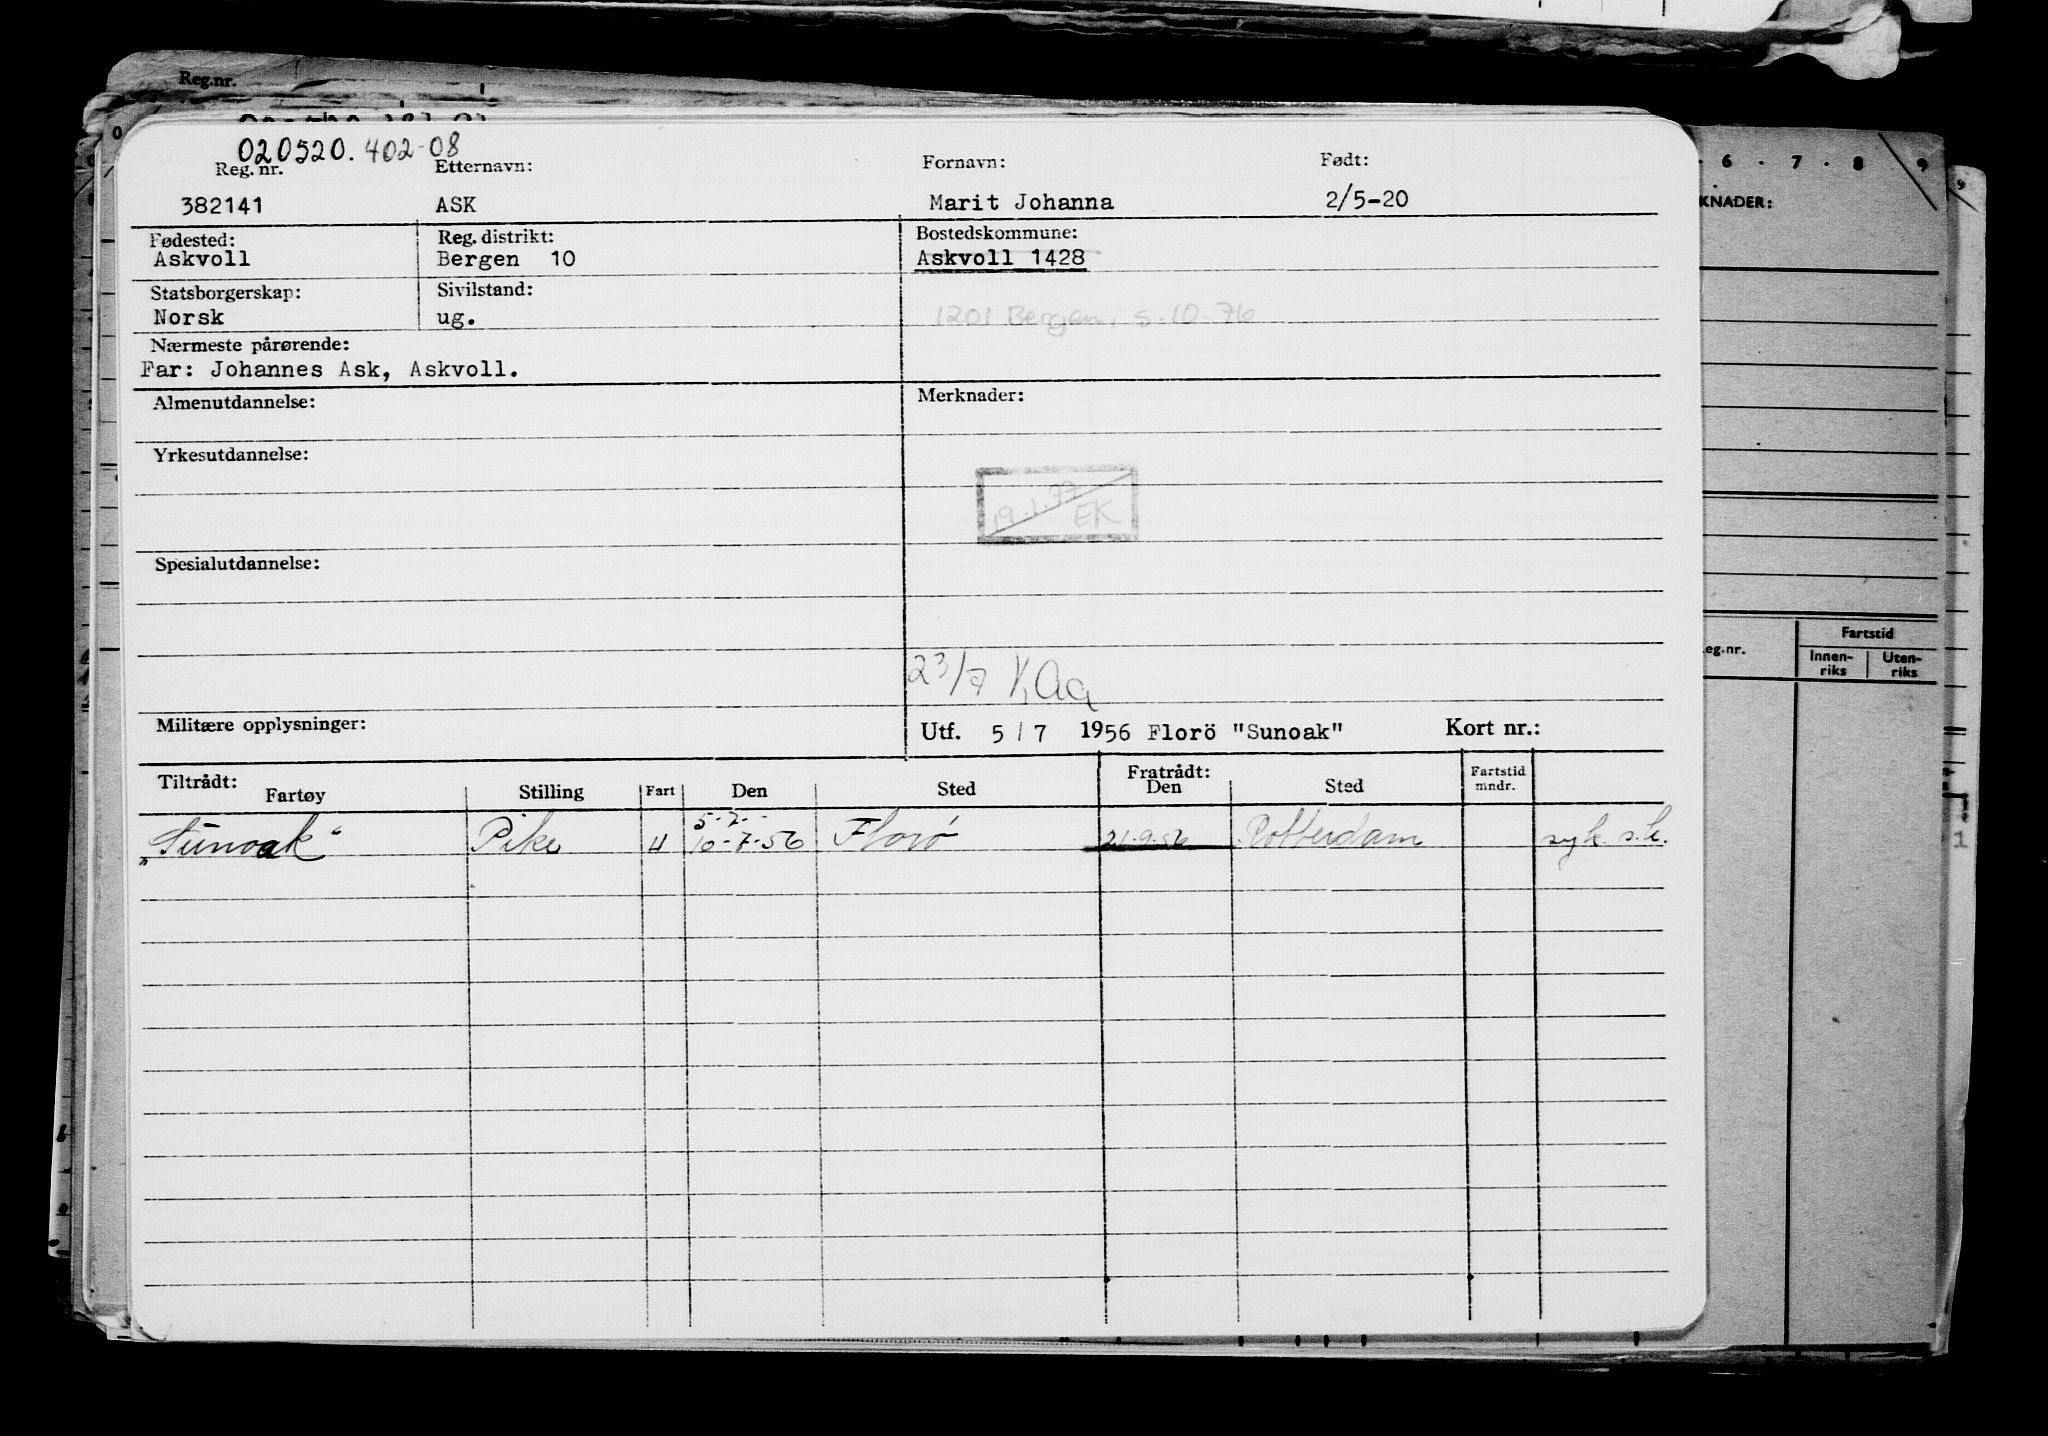 Reg.nr.
6 . 7 . 8 . 9
KNADER:
020520.402-08
Reg. nr. Etternavn: Fornavn: Født:
382141 ASK Marit Johanna 2/5-20
Fødested: Reg. distrikt: Bostedskommune:
Askvoll Bergen 10 Askvoll 1428
Statsborgerskap: Sivilstand:
Norsk ug. 1201 Bergen, s.10.76
Nærmeste pårørende:
Far: Johannes Ask, Askvoll.
Almenutdannelse: Merknader:
Yrkesutdannelse:
19.1.77
EK
Spesialutdannelse:
23/7 KAa
Militære opplysninger: Utf. 5/7 1956 Florö "Sunoak" Kort nr.:
Tiltrådt: Fratrådt:
Fartøy Stilling Fart Den Sted Den Sted Fartstid mndr.
5-7-
„Sunoak“ Pike U 10-7-56 Florö 21-9-56 Rotterdam syk. s.k.
Fartstid
eg.nr. Innen-riks Uten-riks